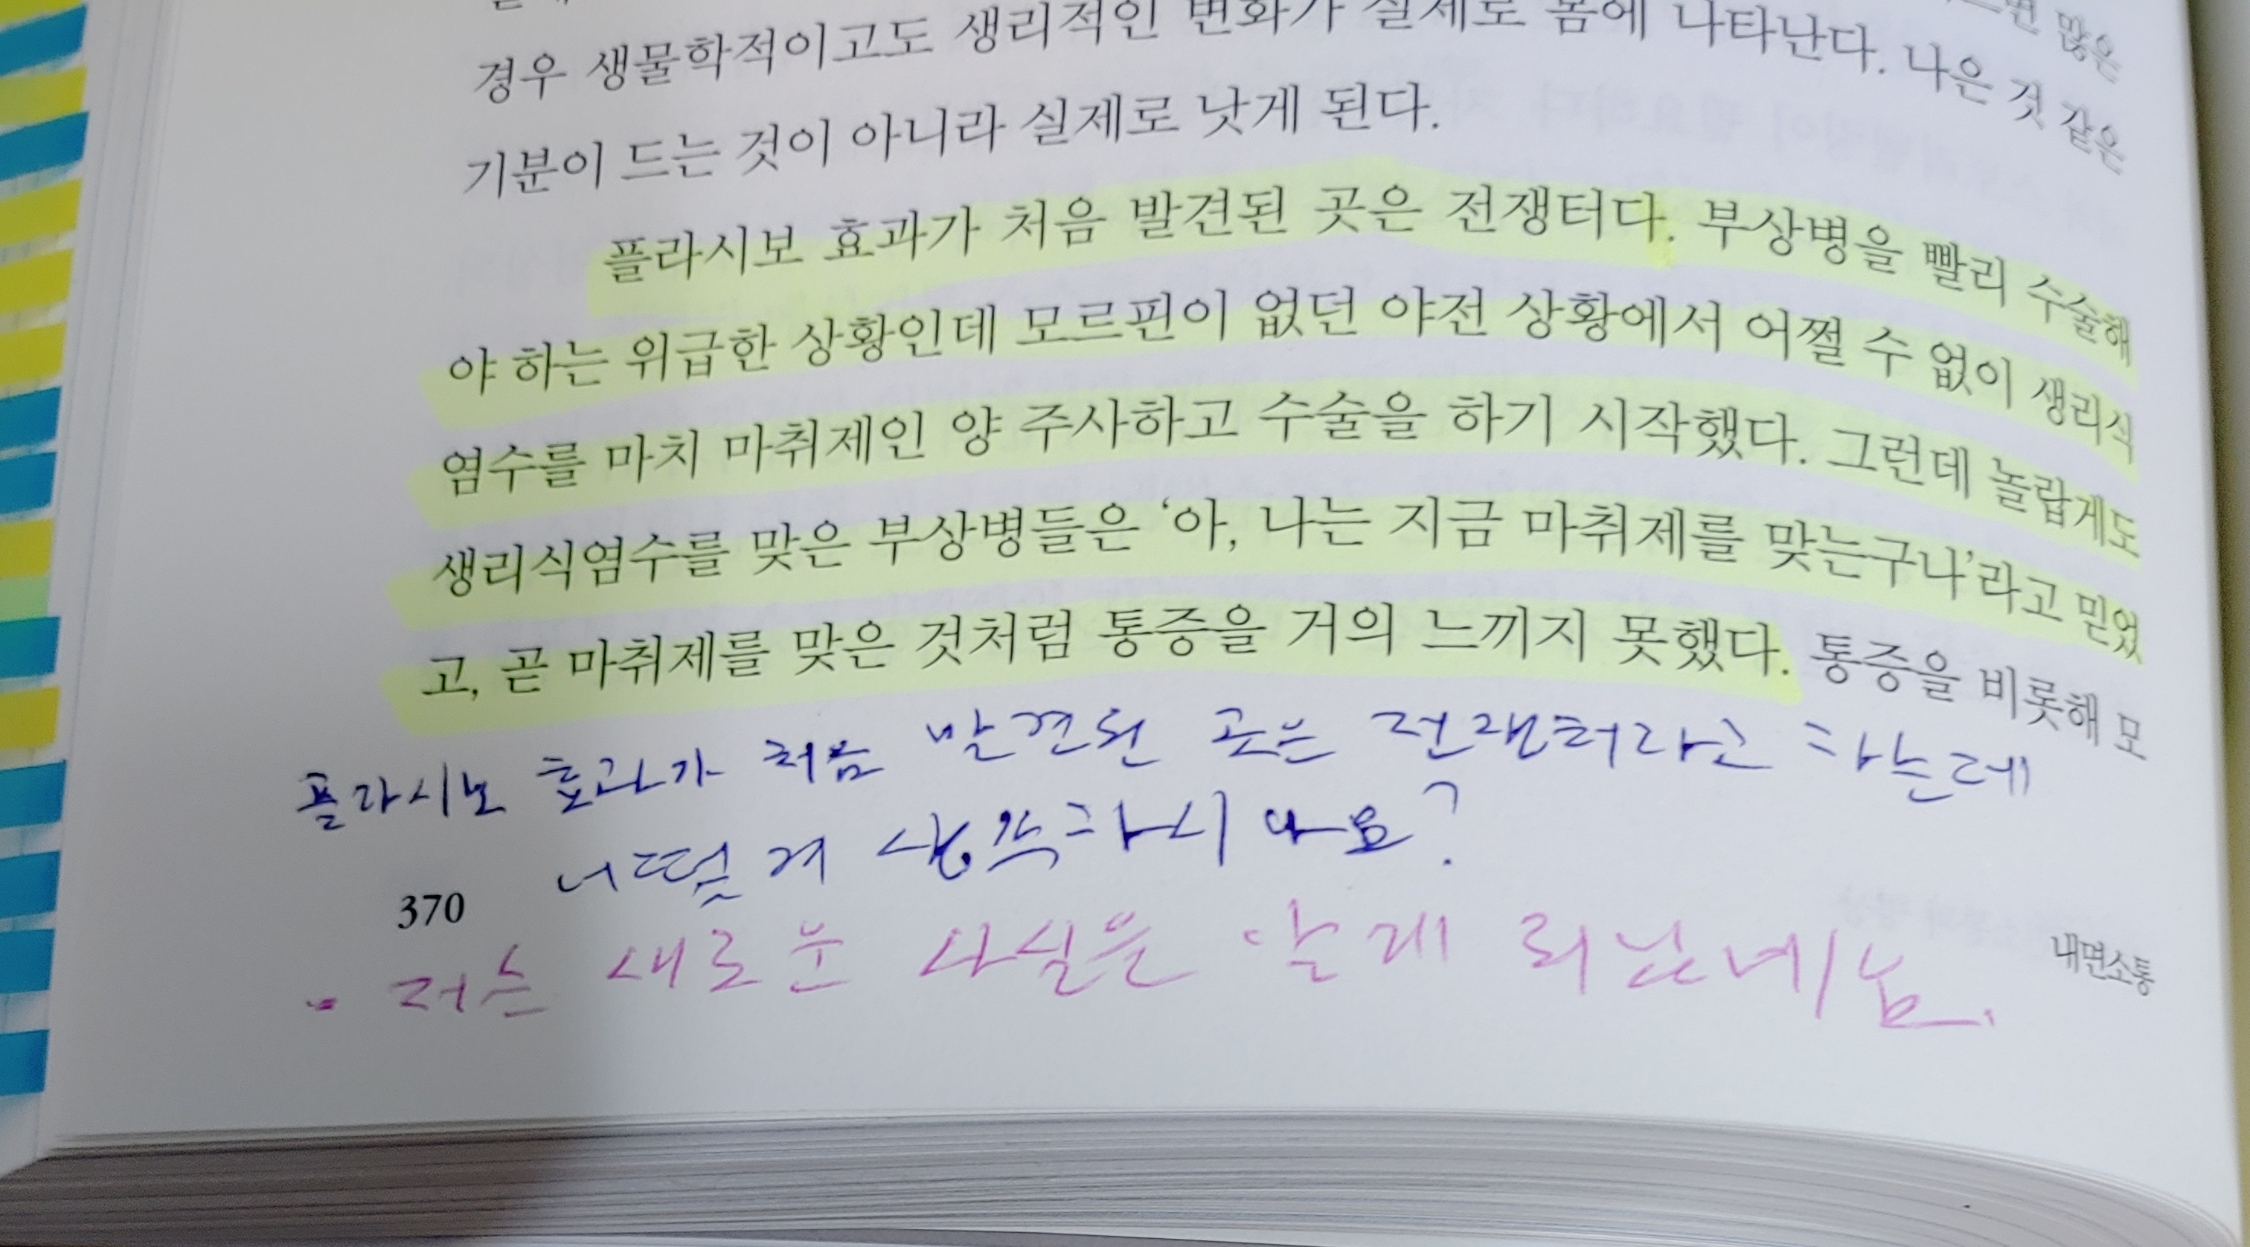 경우 생물학적이고도 생리적인 변화가 실제로 몸에 나타난다. 나은 것 같은
기분이 드는 것이 아니라 실제로 낫게 된다.
플라시보 효과가 처음 발견된 곳은 전쟁터다. 부상병을 빨리 수술해
야 하는 위급한 상황인데 모르핀이 없던 야전 상황에서 어쩔 수 없이 생리식
염수를 마치 마취제인 양 주사하고 수술을 하기 시작했다. 그런데 놀랍게도
생리식염수를 맞은 부상병들은 ‘아, 나는 지금 마취제를 맞는구나’라고 믿었
고, 곧 마취제를 맞은 것처럼 통증을 거의 느끼지 못했다. 통증을 비롯해 모
플라시보 효과가 처음 발견된 곳은 전쟁터라고 하는데
어떻게 생각하시나요?
370
저는 새로운 사실은 알게 되었네요.
내면소통